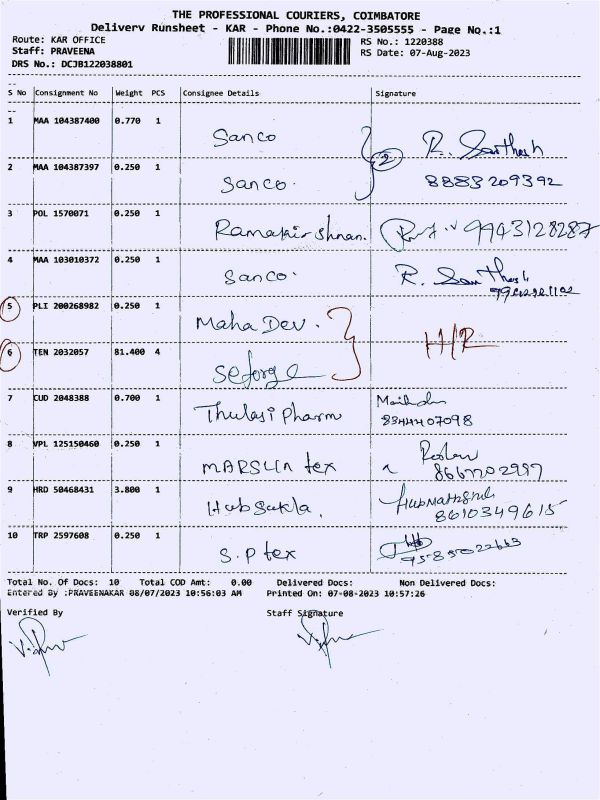 THE PROFESSIONAL COURIERS, COIMBATORE
Delivery Runsheet - KAR - Phone No.:0422-3505555 - Page No.:1
Route: KAR OFFICE RS No.: 1220388
Staff: PRAVEENA RS Date: 07-Aug-2023
DRS No.: DCJB122038801
S No Consignment No Weight PCS Consignee Details Signature
1 MAA 104387400 0.770 1 Sanco R. Santhosh
2 MAA 104387397 0.250 1 Sanco. 2 8883209392
3 POL 1570071 0.250 1 Ramakirshnan. 9943128287
4 MAA 103010372 0.250 1 Sanco. R. Santhosh
5 PLI 200268982 0.250 1 Maha Dev.
6 TEN 2032057 81.400 4 Seforge H/R
7 CUD 2048388 0.700 1 Thulasi pharm
8344407098
8 VPL 125150460 0.250 1 MARSLIN tex Roslan
8667202997
9 HRD 50468431 3.800 1 Hub Sukla.
8610349615
10 TRP 2597608 0.250 1 S.P tex
Total No. Of Docs: 10 Total COD Amt: 0.00 Delivered Docs: Non Delivered Docs:
Entered By :PRAVEENAKAR 08/07/2023 10:56:03 AM Printed On: 07-08-2023 10:57:26
Verified By Staff Signature